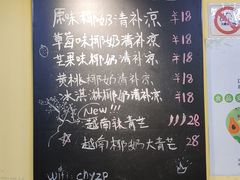 原味椰奶清补凉 ¥18
草莓味椰奶清补凉 ¥18
芒果味椰奶清补凉 ¥18
黄桃椰奶清补凉 ¥18
冰淇淋椰奶清补凉 ¥18
New!!!
越南辣青芒 28
越南椰奶大青芒 28
wifi: chyzp